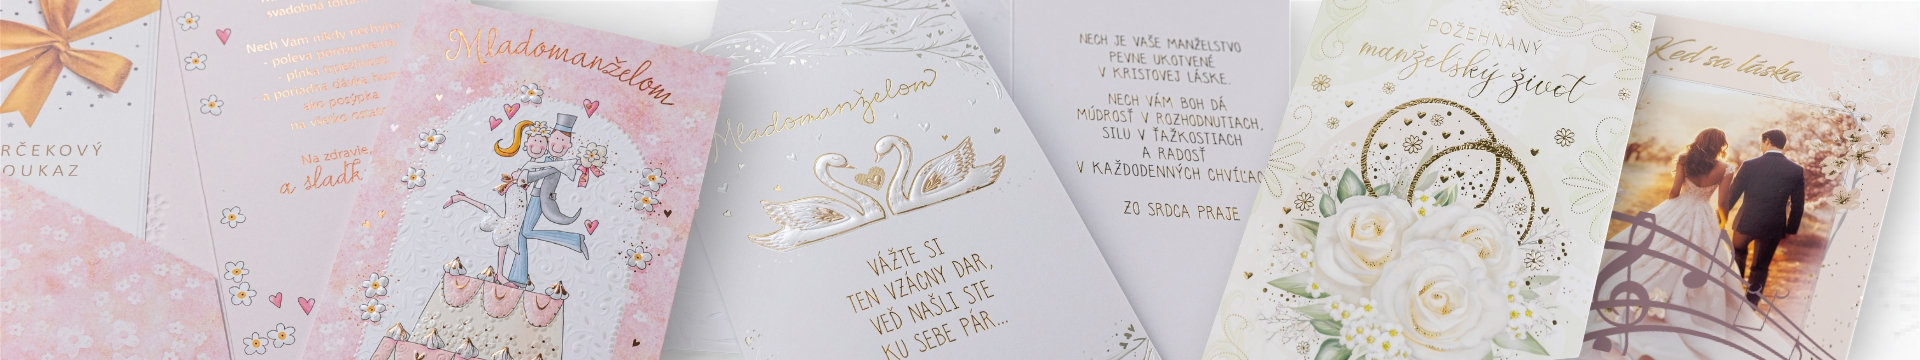 svadobná torta.
Nech Vám nikdy nechýba
- poleva porozumenia
- plnka
- a poriadna dávka
ako posýpka
na všetko ostatné
Na zdravie,
a sladk
RČEKOVÝ
OUKAZ
Mladomanželom
Mladomanželom
VÁŽTE SI
TEN VZÁCNY DAR,
VEĎ NAŠLI STE
KU SEBE PÁR...
NECH JE VAŠE MANŽELSTVO
PEVNE UKOTVENÉ
V KRISTOVEJ LÁSKE.
NECH VÁM BOH DÁ
MÚDROSŤ V ROZHODNUTIACH,
SILU V ŤAŽKOSTIACH
A RADOSŤ
V KAŽDODENNÝCH CHVÍĽAC
ZO SRDCA PRAJE
POŽEHNANÝ
manželský život
Keď sa láska